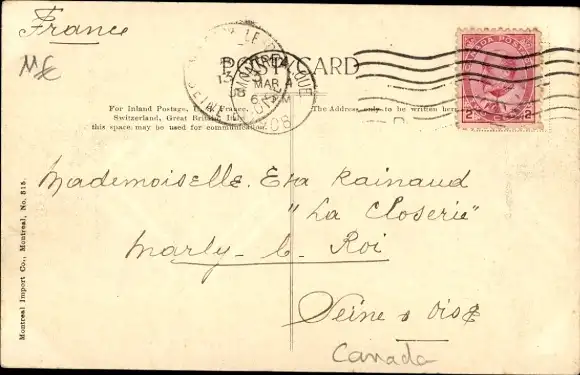 France
POST CARD
MAR 4
For Inland Postage, France,
Switzerland, Great
this space, may be used for communication.
The Address only to be written here
CANADA POSTAGE
2 2
Mademoiselle. Eva Rainaud
"La Closerie"
Marly-l-Roi
Seine & Oise
Canada
Montreal Import Co., Montreal, No. 818.